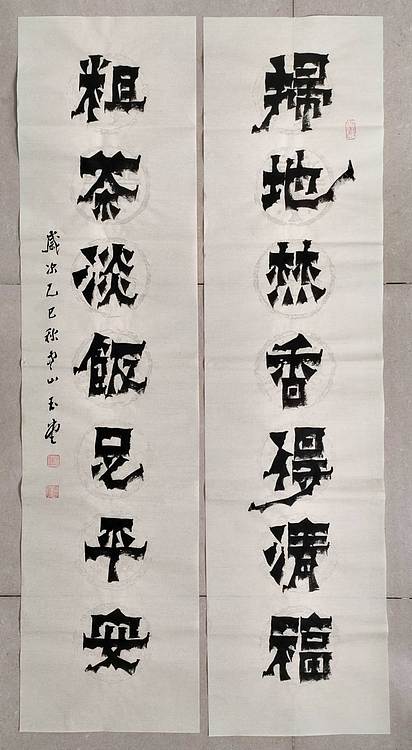 掃地焚香得清福
粗茶淡飯足平安
歲次乙巳秋山玉